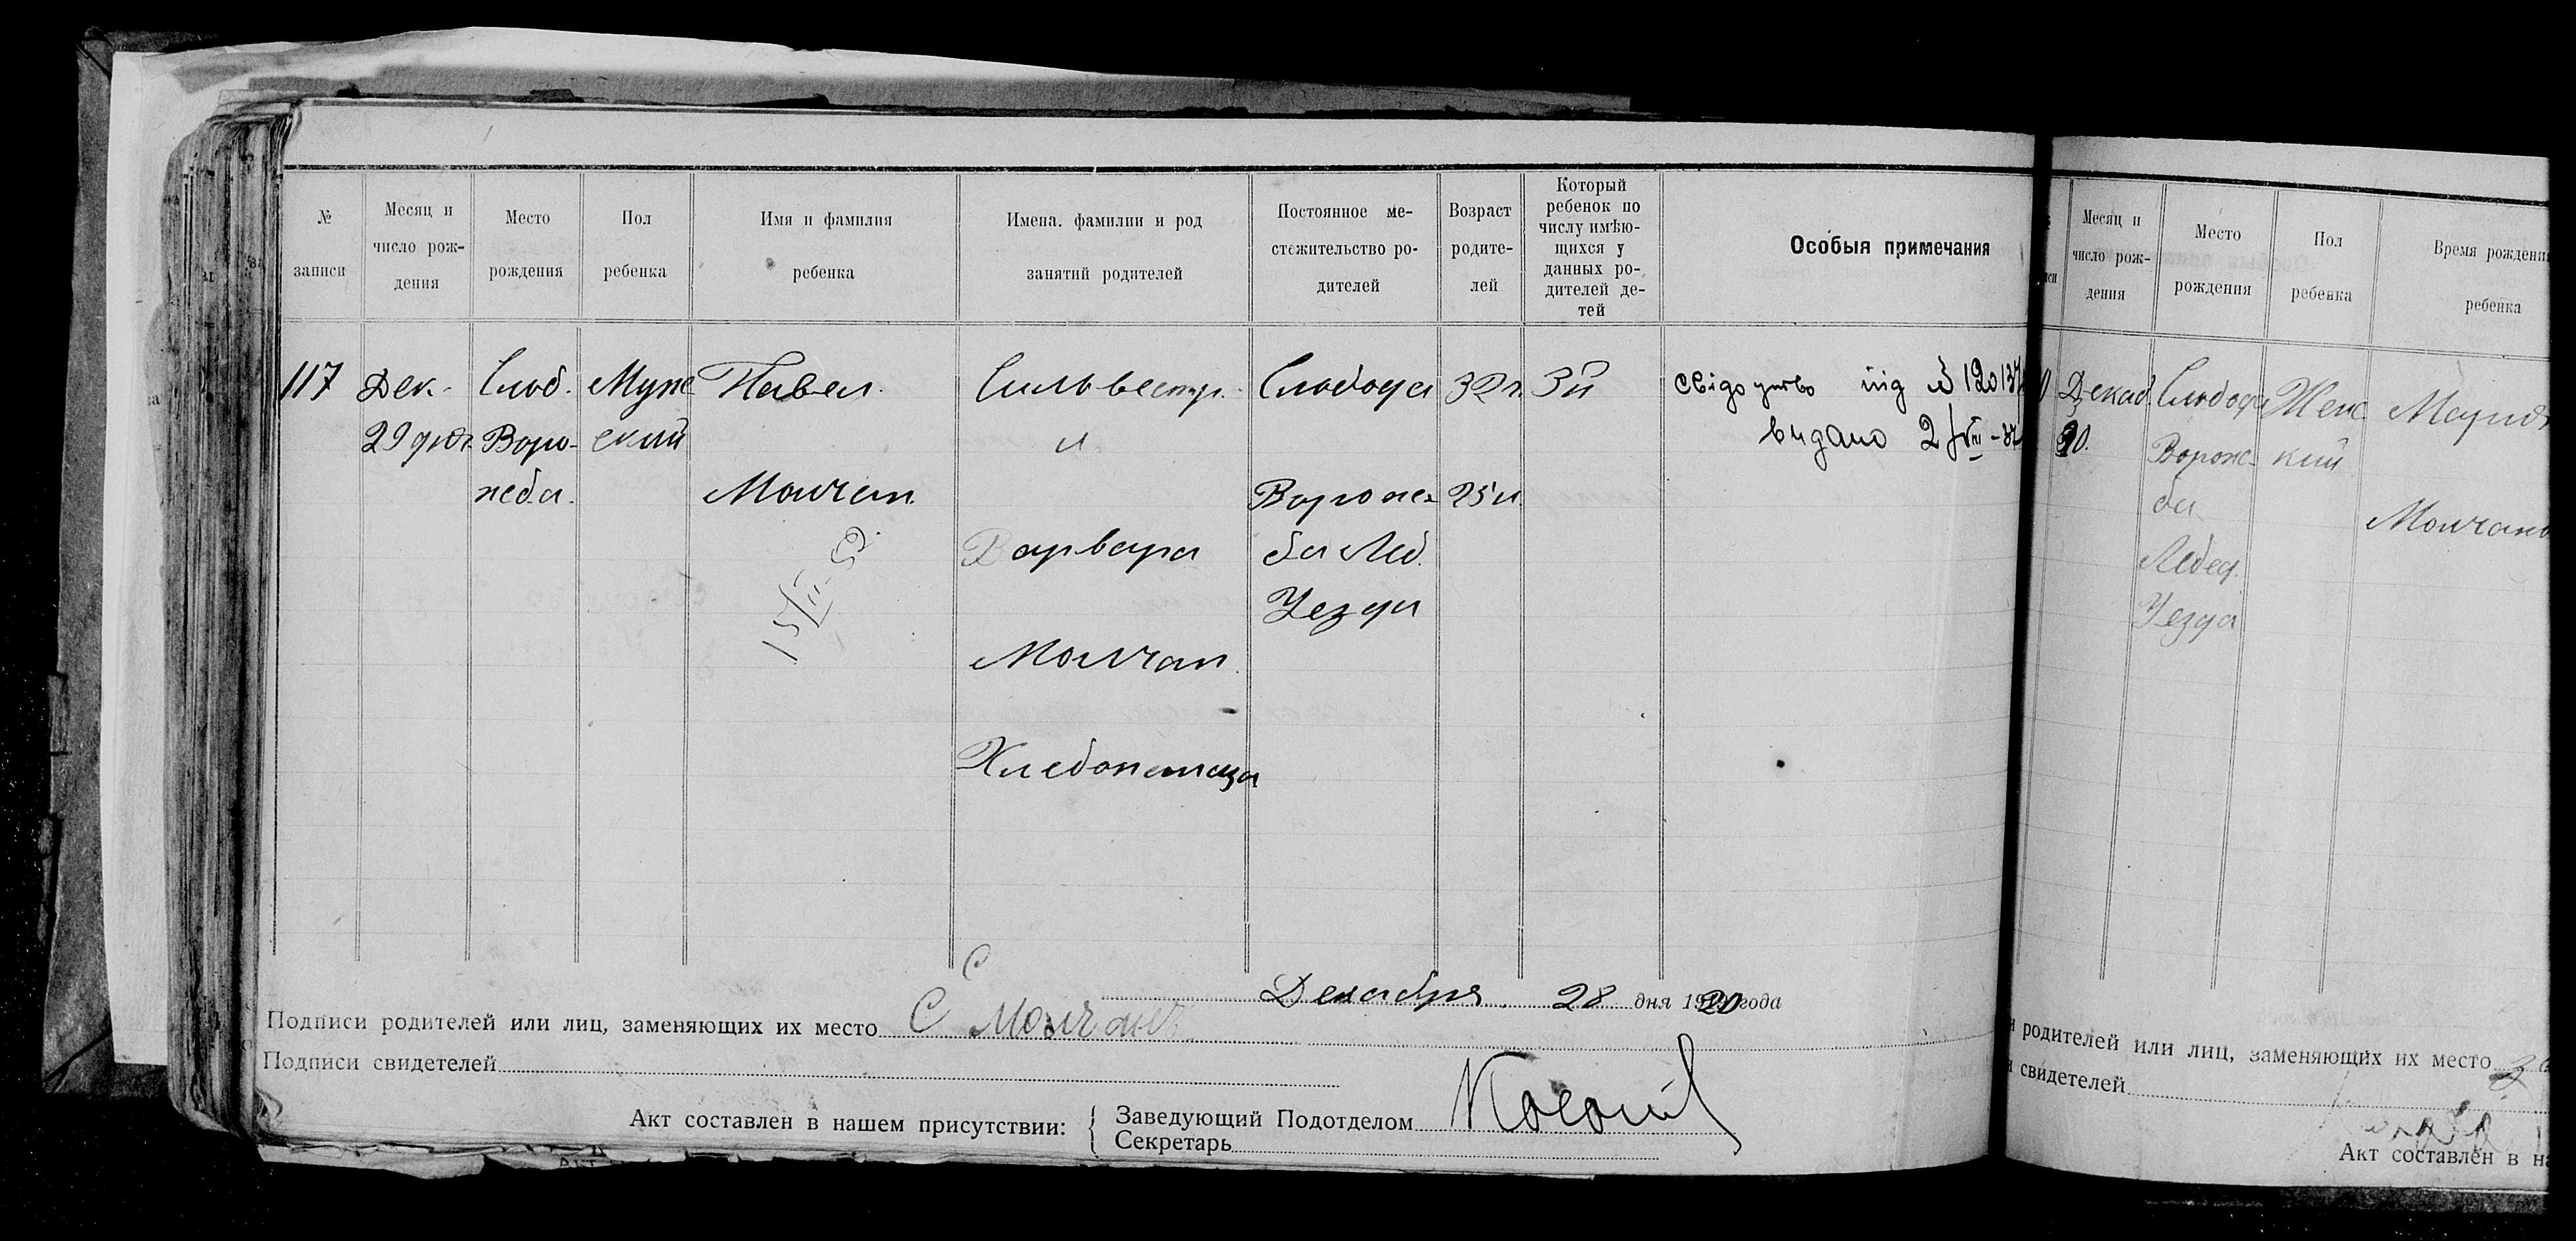 № записи
Месяц и число рождения
Место рождения
Пол ребенка
Имя и фамилия ребенка
Имена. фамилии и род занятий родителей
Постоянное местожительство родителей
Возраст родителей
Который ребенок по числу имѣющихся у данных родителей детей
Особыя примечания
117
Дек.
29 дня
Слоб.
Воро-
жеба.
Муже
ский
Павел.
Молчан.
Сильвестр.
и
Варвара
Молчан.
Хлебопашца
Слобода
Вороже-
ба Леб.
Уезда
32 г.
25 л.
3й
свідоцтво під № 120137
видано 2/VIII-37
Декабря 28 дня 1920 года
Подписи родителей или лиц, заменяющих их место С Молчан
Подписи свидетелей
Акт составлен в нашем присутствии:
Заведующий Подотделом
Секретарь
Месяц и число рождения
Место рождения
Пол ребенка
Время рождени
ребенка
Декаб.
Слобода
Вороже-
ба
Лебед.
Уезда
Женс
кий
Мария
Молчан
родителей или лиц, заменяющих их место
свидетелей
Акт составлен в на